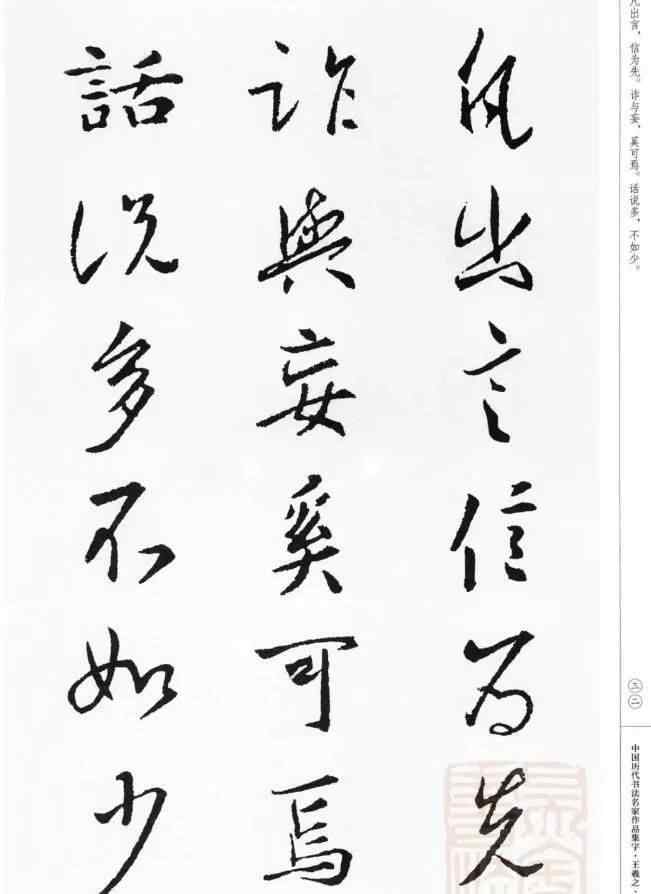 凡出言信为先
詐與妄奚可焉
話説多不如少
凡出言，信为先。诈与妄，奚可焉。话说多，不如少。
三二
中国历代书法名家作品集字·王羲之·